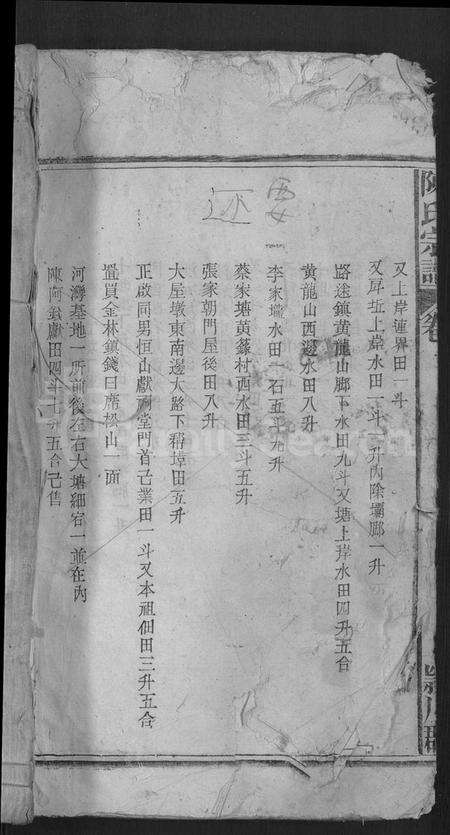 陳氏宗譜 卷
又上岸連界田一斗
又戽坵上岸水田一斗 升內除壩廊一升
路述鎮黃龍山廊下水田九斗又塘上岸水田四升五合
黃龍山西邊水田八升
李家壋水田一石五斗九升
蔡家塘黃蔡村西水田三斗五升
張家朝門屋後田八升
大屋墩東南邊大路下 田五升
正啟同男恒山獻祠堂門首己業田一斗又本祖佃田三升五合
買金林鎮錢曰席松山一面
河灣基地一所前後左右大塘細宕一並在內
陳阿 獻田四斗七升五合已售